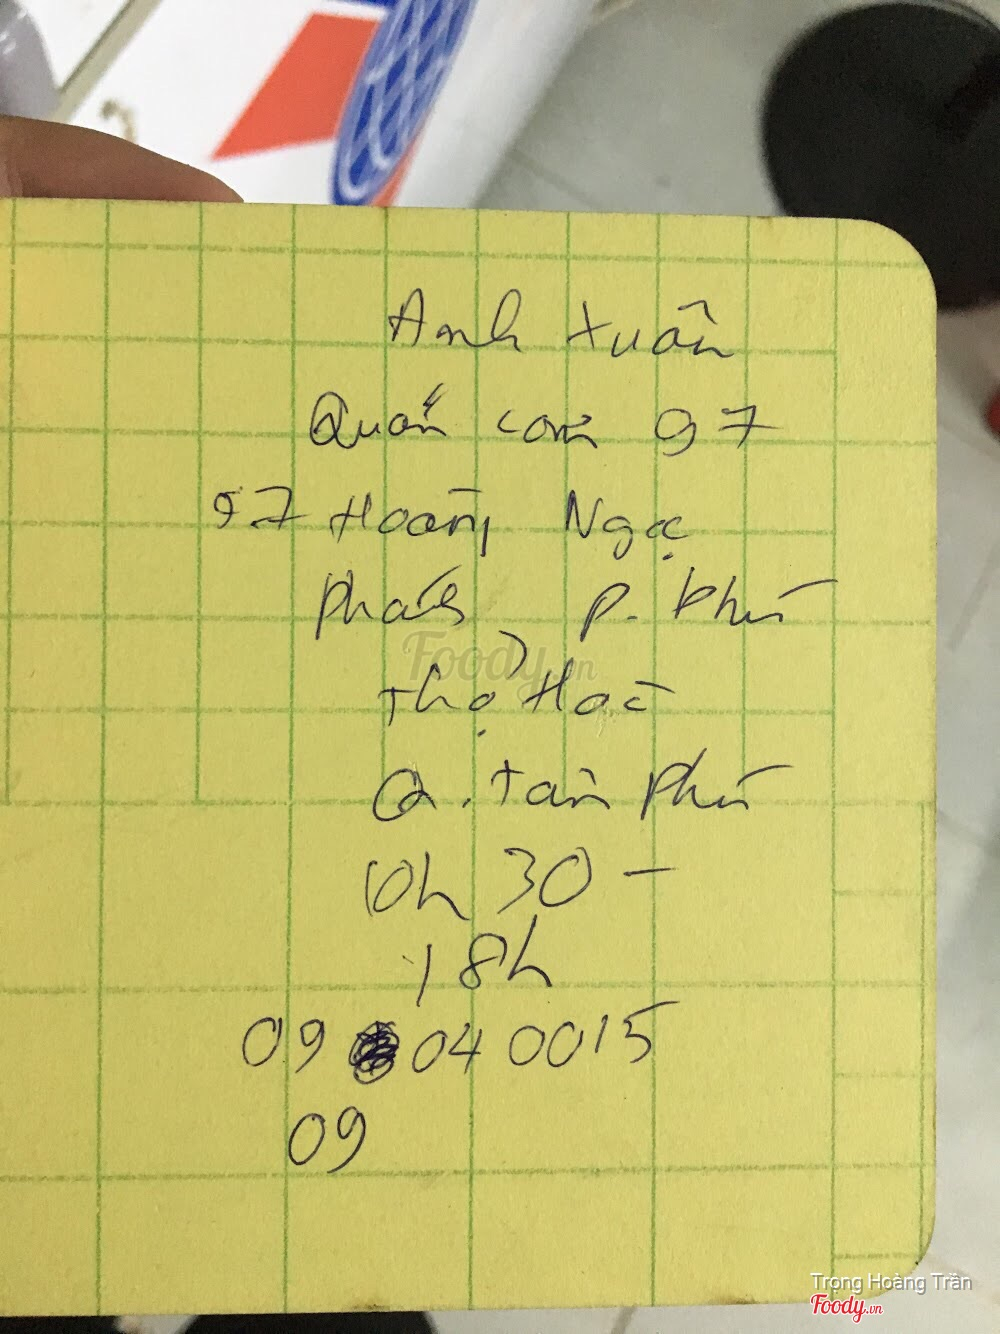 Anh Xuân
Quán cơm 97
97 Hoàng Ngọc
Phách P. Phú
Thọ Hoà
Q. Tân Phú
10h30 -
18h
09 040015
09
Foody.vn
Trọng Hoàng Trần
Foody.vn